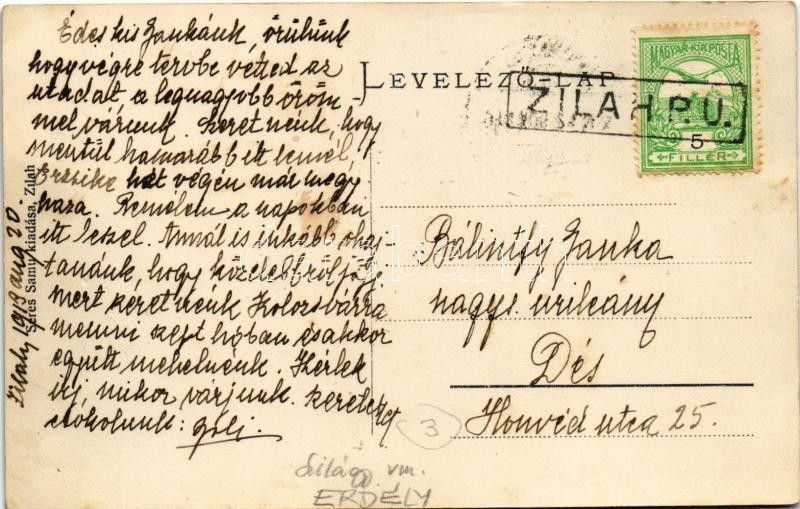 Édes kis Jankánk, örülünk
hogy végre tervbe vetted az
utadat a legnagyobb öröm-
mel várunk. Szeretnénk, hogy
mentül hamarább itt lennél,
Erzsike hét végén már megy
haza. Remélem a napokban
itt leszel. Annál is inkább ohaj-
tanánk, hogy
mert szeretnénk Kolozsvárra
menni szept hóban és akkor
együtt mehetnénk. Kérlek
írj, mikor várjunk. Szeretettel
csokolunk:
Zilah, 1913 aug 20.
Seres Samu kiadása, Zilah
LEVELEZŐ-LAP
ZILAH P. U.
MAGYAR KIR. POSTA
5
FILLÉR
Bálintfy Janka
nagys. urileány
Dés
Honvéd utca 25.
3
Szilágy vm.
ERDÉLY
darabanth